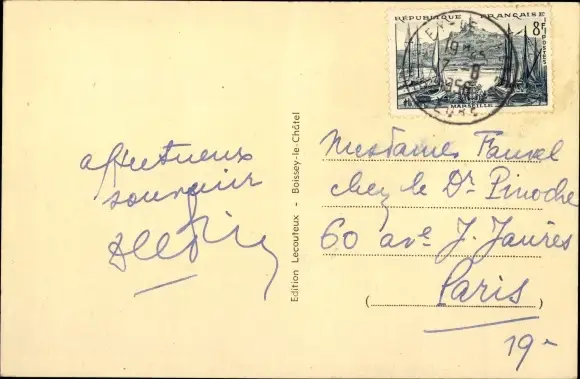 RÉPUBLIQUE FRANÇAISE
8F
POSTES
MARSEILLE
19 H
7 - 8
1956
EURE
affectueux
souvenir
Edition Lecouteux - Boissey-le-Châtel
Mesdames Fauvel
chez le Dr Pinoche
60 ave J. Jaurès
Paris
( )
19-